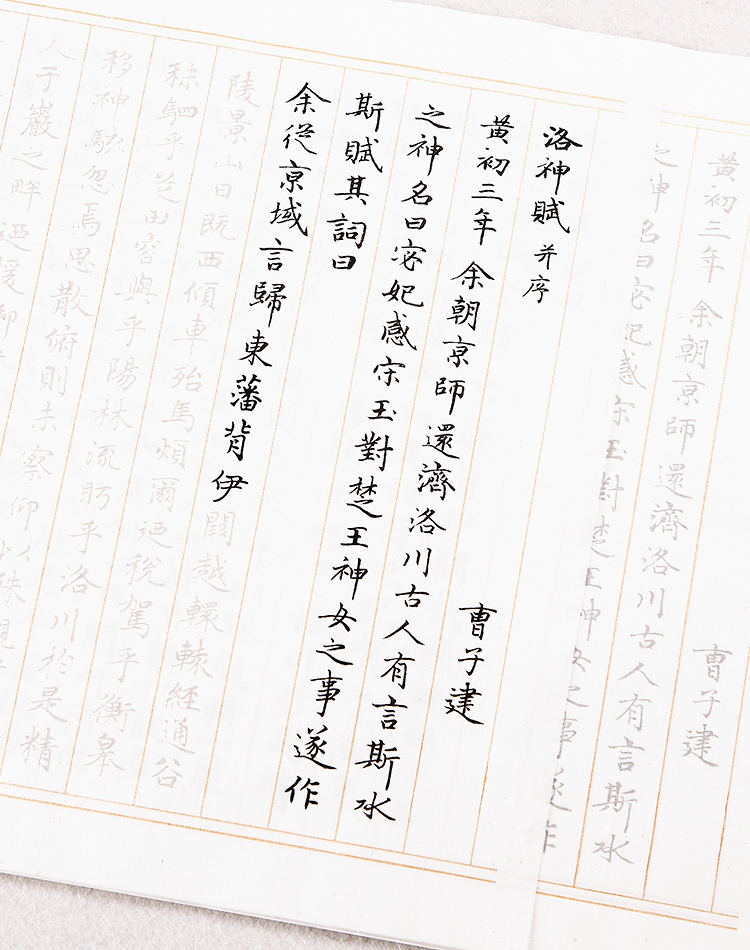 曹子建
黃初三年余朝京師還濟洛川古人有言斯水
之神名曰宓妃感宋玉對楚王神女之事遂作
洛神賦并序 曹子建
黃初三年余朝京師還濟洛川古人有言斯水
之神名曰宓妃感宋玉對楚王神女之事遂作
斯賦其詞曰
余從京域言歸東藩背伊闕越轘轅經通谷
陵景山日既西傾車殆馬煩爾迺稅駕乎衡皋
秣駟乎芝田容與乎陽林流眄乎洛川於是精
移神駭忽焉思散俯則未察仰以殊觀
人于巖之畔迺援御